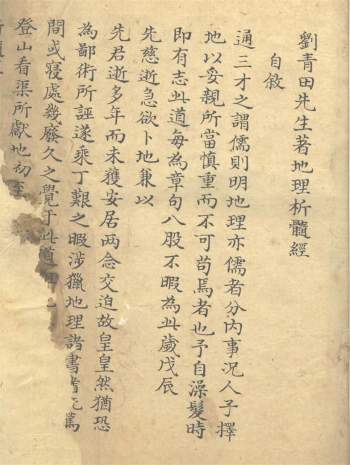 劉青田先生著地理析髓經
自敘
通三才之謂儒則明地理亦儒者分內事況人子擇
地以妥親所當慎重而不可苟焉者也予自澡髮時
即有志此道每為章句八股不暇為此歲戊辰
先慈逝急欲卜地兼以
先君逝多年而未獲安居两念交迫故皇皇然猶恐
為鄙術所誤遂乘丁艱之暇涉獵地理諸書
間或寢處幾廢久之覺于此道
登山看渠所獻地